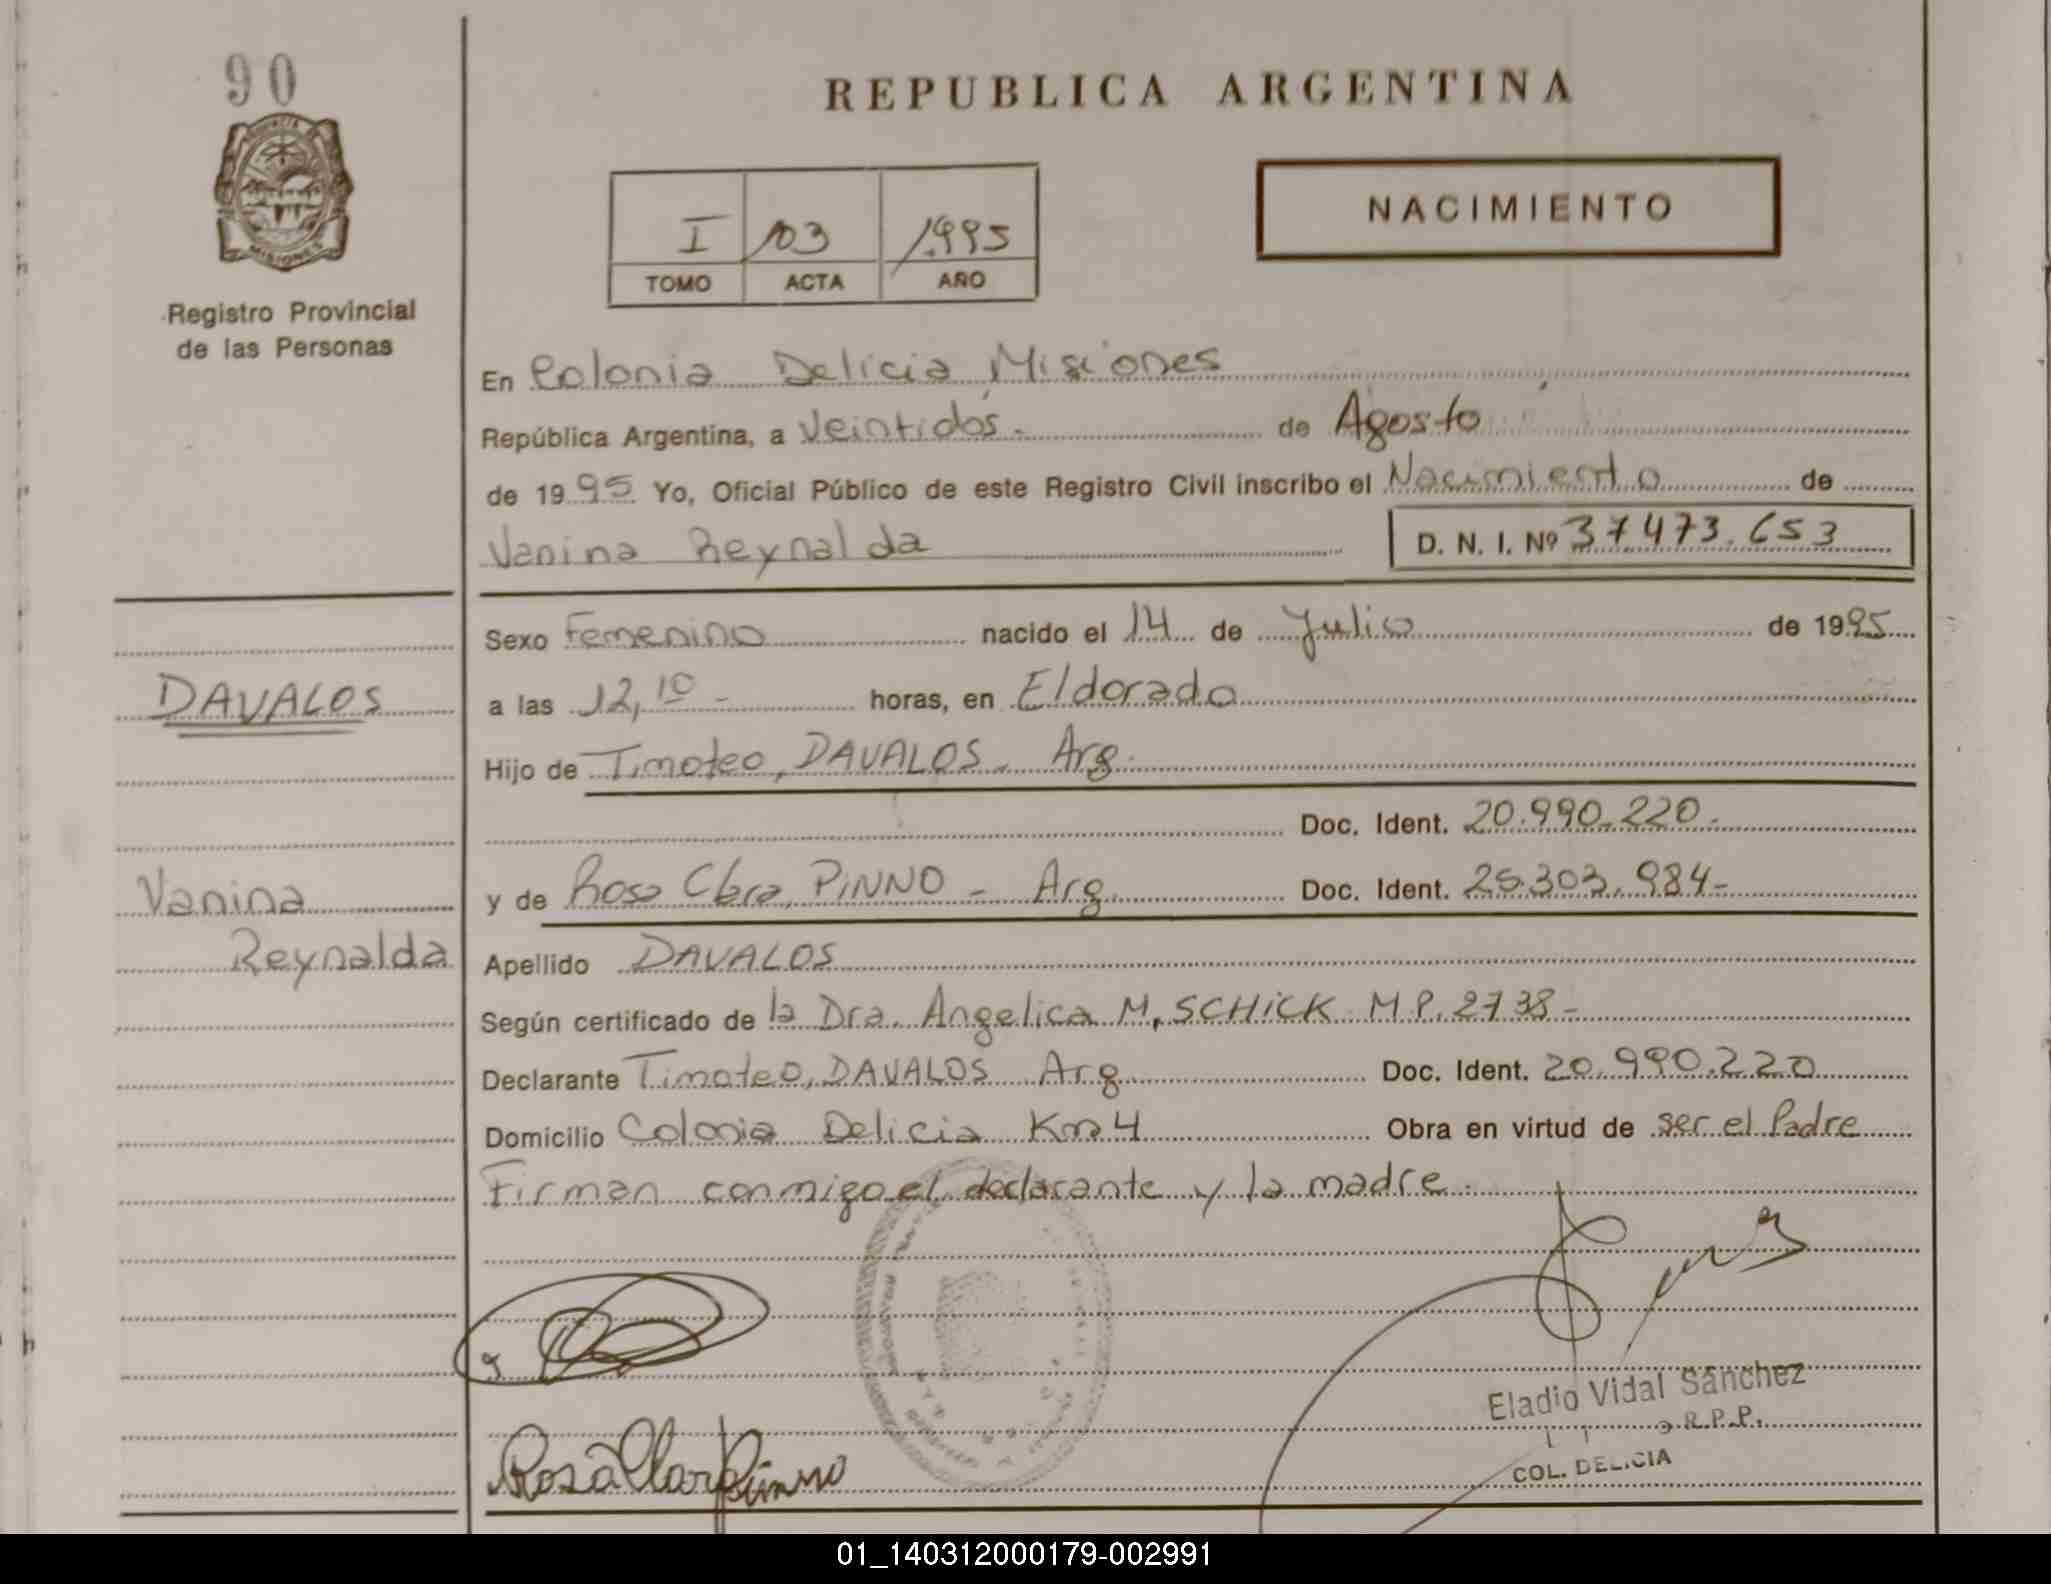 90
REPUBLICA ARGENTINA
MISIONES
Registro Provincial
de las Personas
I 103 1995
TOMO ACTA AÑO
NACIMIENTO
En Colonia Delicia, Misiones
República Argentina, a Veintidós.- de Agosto
de 1995 Yo, Oficial Público de este Registro Civil inscribo el Nacimiento de
Vanina Reynalda D. N. I. Nº 37.473.653
Sexo Femenino nacido el 14 de Julio de 1995
DAVALOS
a las 12,10- horas, en Eldorado
Hijo de Timoteo, DAVALOS- Arg.
Doc. Ident. 20.990.220.-
Vanina
y de Rosa Clara, PINNO - Arg. Doc. Ident. 25.303.984-
Reynalda
Apellido DAVALOS
Según certificado de la Dra. Angelica M, SCHICK M.P. 2738-
Declarante Timoteo, DAVALOS Arg. Doc. Ident. 20.990.220
Domicilio Colonia Delicia Km 4 Obra en virtud de ser el Padre
Firman conmigo el declarante y la madre.
Eladio Vidal Sánchez
R.P.P.
COL. DELICIA
Rosa Clara Pinno
01_140312000179-002991